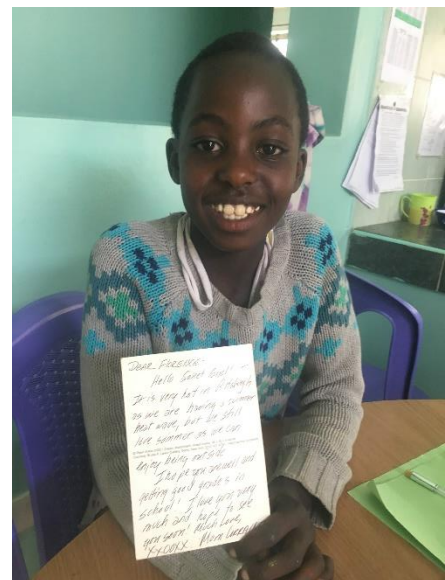 DEAR FLORENCE-
Hello Sweet Girl! -
It is very hot in
as we are having a summer
heat wave, but we still
love summer as we can
enjoy being outside
I hope you are well and
getting good grades in
school! I love you very
much and hope to see
you soon! Much Love,
XXOOXX Mom